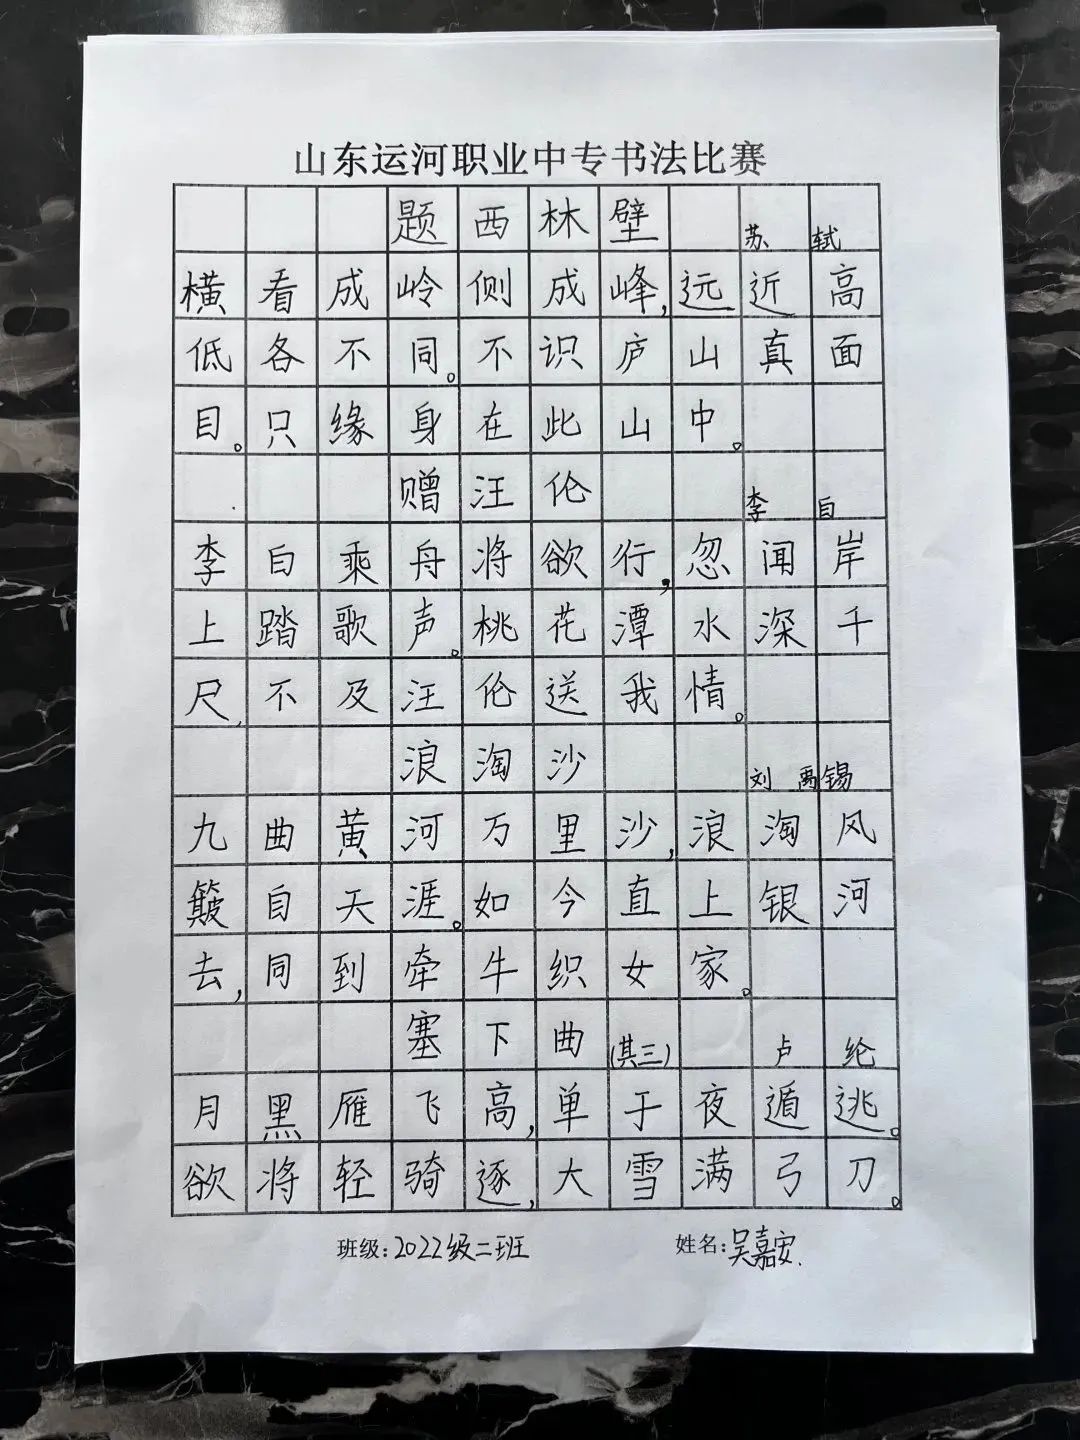 山东运河职业中专书法比赛
题西林壁 苏轼
横看成岭侧成峰,远近高
低各不同。不识庐山真面
目。只缘身在此山中。
赠汪伦 李白
李白乘舟将欲行,忽闻岸
上踏歌声。桃花潭水深千
尺,不及汪伦送我情。
浪淘沙 刘禹锡
九曲黄河万里沙,浪淘风
簸自天涯。如今直上银河
去,同到牵牛织女家。
塞下曲(其三) 卢纶
月黑雁飞高,单于夜遁逃。
欲将轻骑逐,大雪满弓刀。
班级:2022级二班 姓名:吴嘉安.